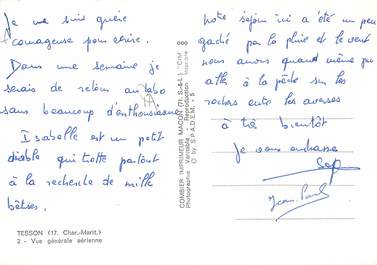 Je ne suis guère
courageuse pour écrire.
Dans une semaine je
serais de retour au labo
sans beaucoup d'enthousiasme
Isabelle est un petit
diable qui trotte partout
à la recherche de mille
bêtises.
TESSON (17. Char.-Marit.)
2 - Vue générale aérienne
COMBIER IMPRIMEUR MACON (71. S.-&-L.) "CIM"
Photographie Véritable - Reproduction Interdite
© by S.P.A.D.E.M. - 5
Notre séjour ici a été un peu
gaché par la pluie et le vent
nous avons quand même pu
aller à la pêche sur les
rochers entre les averses
à très bientôt
Je vous embrasse
Jean-Paul